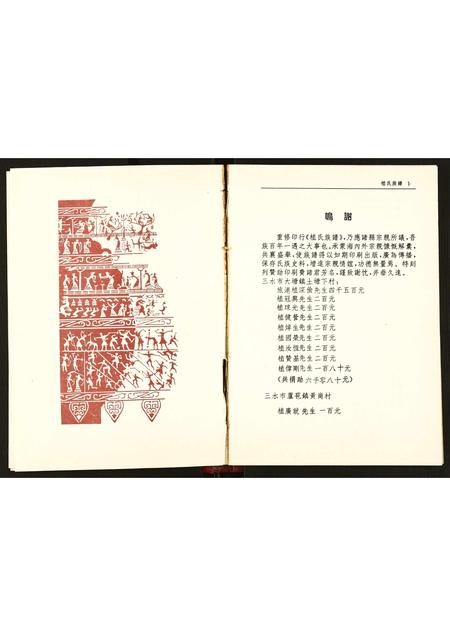 植氏族譜 1
鳴謝
重修印行《植氏族譜》,乃應諸縣宗親所議,吾
族百年一遇之大事也,承蒙海內外宗親慷慨解囊,
共襄盛舉,使族譜得以如期印刷出版,廣為傳播,
保存氏族史料,增進宗親情誼,功德無量焉。特刻
列贊助印刷費諸君芳名,謹致謝忱,并垂久遠。
三水市大塘鎮上塘下村:
旅港植深偉先生四千五百元
植冠興先生二百元
植球光先生二百元
植健譽先生二百元
植焯生先生二百元
植國榮先生二百元
植汝恆先生二百元
植贊基先生二百元
植偉剛先生一百八十元
(共捐助六千零八十元)
三水市蘆苞鎮黃崗村
植廣就先生一百元